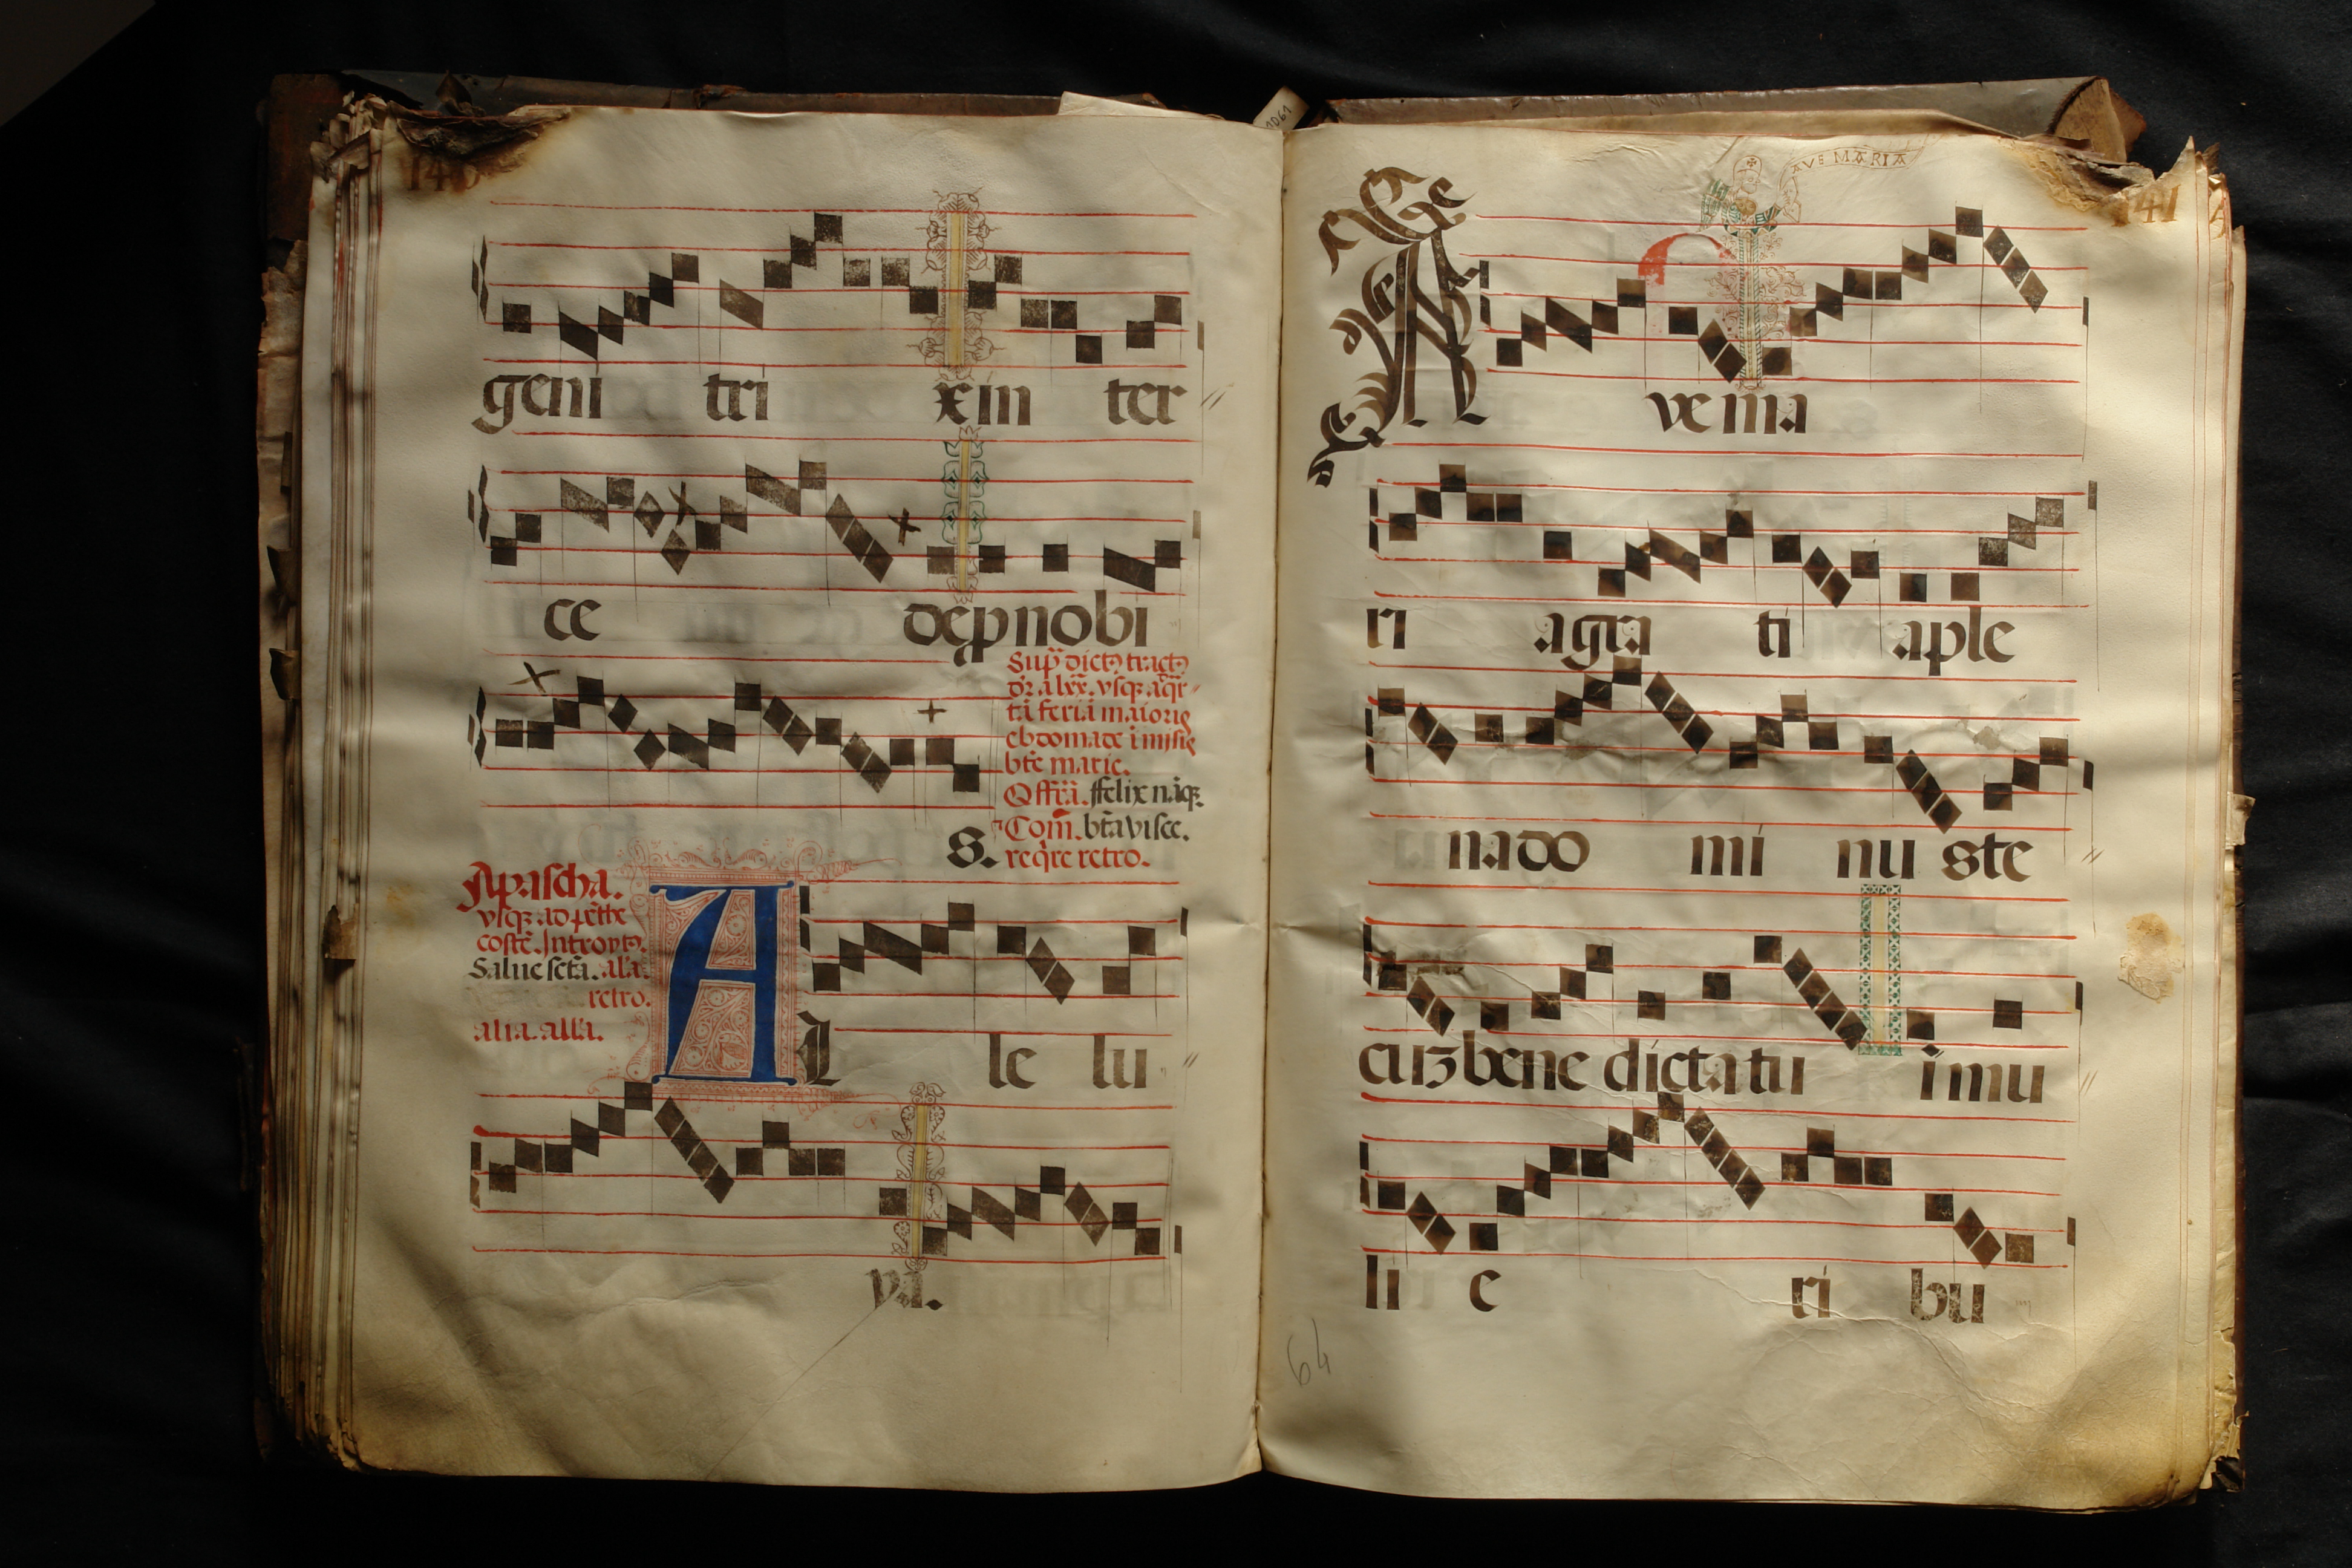 geni tri x in ter
ce de p nobi
s.
Sup̃ dictꝰ tractꝰ
dr̃ a lxx. vsqꝫ
tã feriã maioris
ebdomade ĩ missis
bt̃e marie.
Offr̃ã. ffelix nãqꝫ.
Com̃. bt̃a visce.
reqr̃e retro.
A pascha.
vsqꝫ ad pẽthe
costẽ. Introytꝰ.
Salue sct̃a. alã.
retro.
alia. allã.
A L le lu
ya.
1061
AVE MARIA
141
A ve ma
ri a gra ti a ple
na do mi nu s te
cuꝫ bene dicta tu i mu
li e ri bu
64